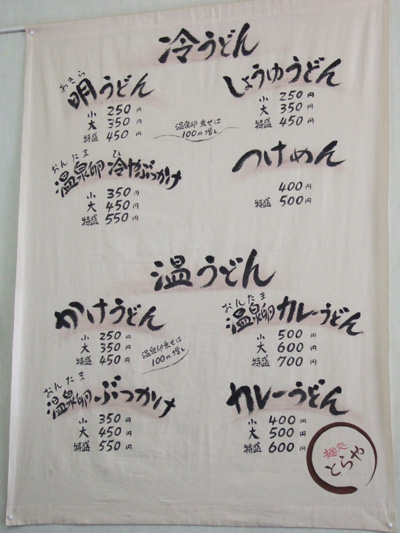 冷うどん
あきら
明うどん
小 250円
大 350円
特盛 450円
温泉卵乗せは
100円増し
しょうゆうどん
小 250円
大 350円
特盛 450円
おんたま ひ
温泉卵冷やぶっかけ
小 350円
大 450円
特盛 550円
つけめん
400円
特盛 500円
温うどん
かけうどん
小 250円
大 350円
特盛 450円
温泉卵乗せは
100円増し
おんたま
温泉卵カレーうどん
小 500円
大 600円
特盛 700円
おんたま
温泉卵ぶっかけ
小 350円
大 450円
特盛 550円
カレーうどん
小 400円
大 500円
特盛 600円
麺処
とらや